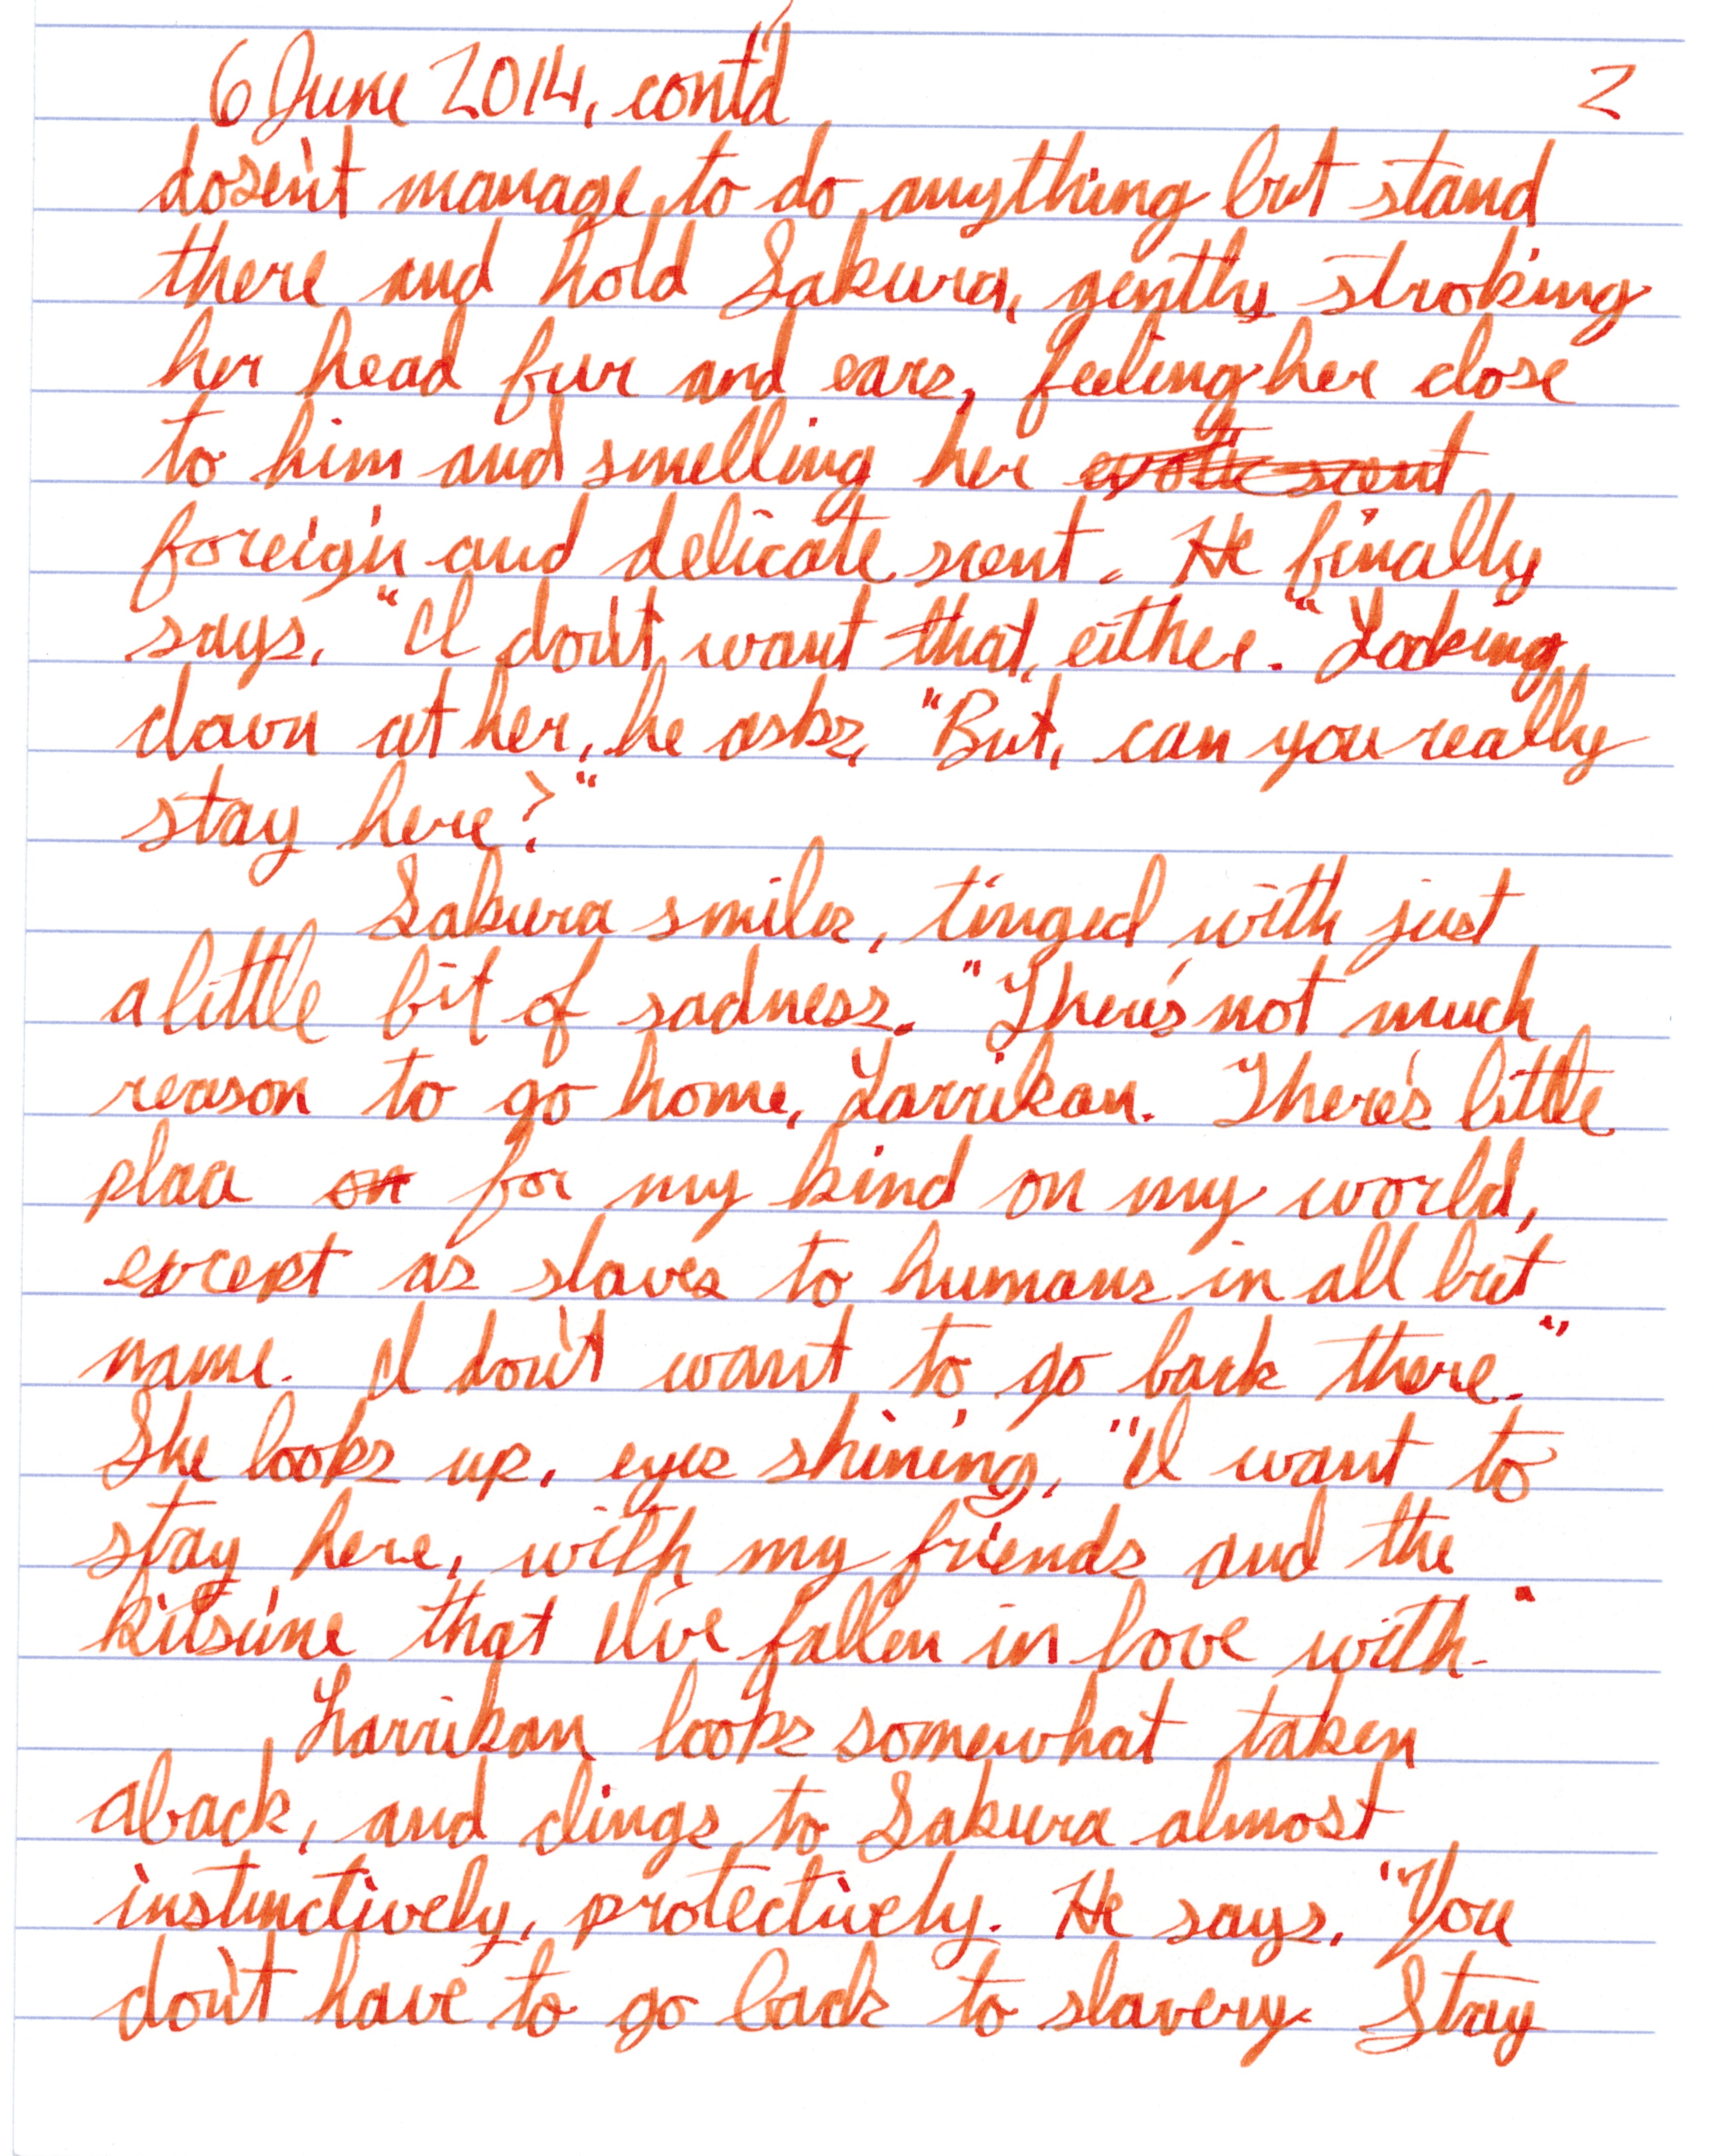 6 June 2014, cont'd 2
dosen't manage to do anything but stand
there and hold Sakura, gently stroking
her head fur and ears, feeling her close
to him and smelling her exotic scent
foreign and delicate scent. He finally
says, "I don't want that, either." Looking
down at her, he asks, "But, can you really
stay here?"
Sakura smiles, tinged with just
a little bit of sadness. "There's not much
reason to go home, Larrikan. There's little
place on for my kind on my world,
except as slaves to humans in all but
name. I don't want to go back there."
She looks up, eyes shining, "I want to
stay here, with my friends and the
kitsune that I've fallen in love with."
Larrikan looks somewhat taken
aback, and clings to Sakura almost
instinctively, protectively. He says, "You
don't have to go back to slavery. Stay